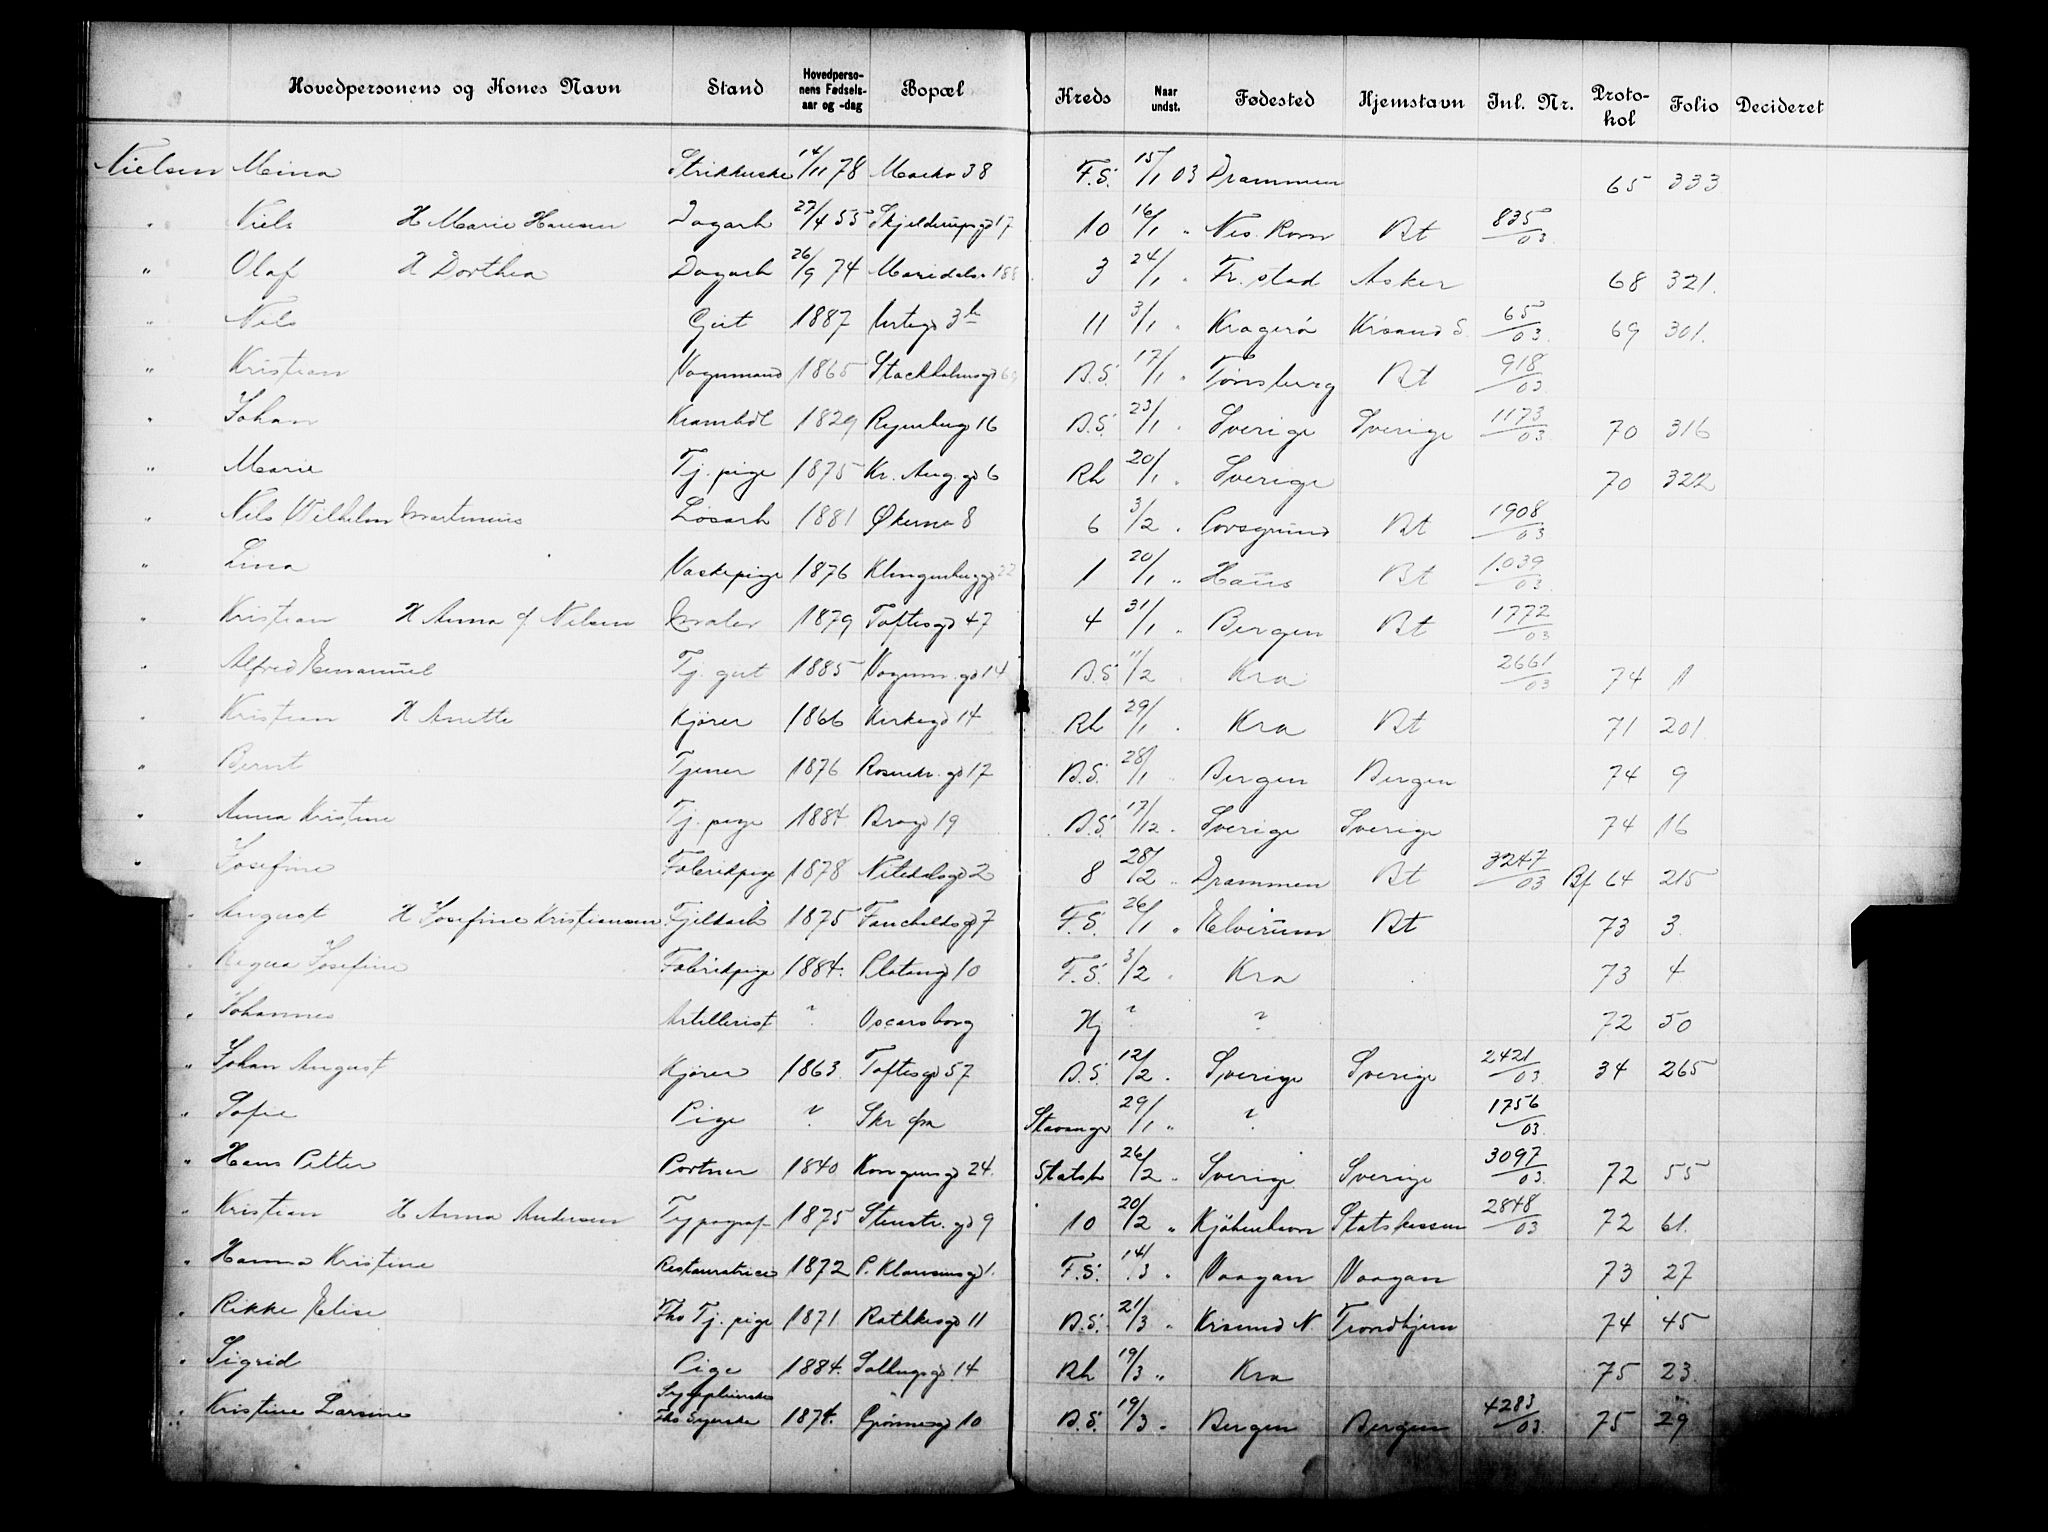 Hovedpersonens og Kones Navn Stand Hovedperso-nens Fødsels-aar og -dag Bopæl Kreds Naar undst. Fødested Hjemstavn Inl. Nr. Proto-kol Folio Decideret
Nielsen Mina 14/11 78 38 F.S. 15/1 03 Drammen 65 333
" Niels H Marie Hansen Dagarb 27/4 53 Skjelderupsgd 17 10 16/1 " Nes. Rom Bt 835/03
" Olaf H Dorthea Dagarb 26/9 74 Maridalsv 188 3 24/1 " Fr. stad Asker 68 321.
" Nils Gut 1887 Urtegd 3 b 11 3/1 " Kragerø Krsand S. 65/03 69 301.
" Kristian Vognmand 1865 Stockholmsgd B.S. 17/1 " Tønsberg Bt 918/03
" Johan Kramhdl 1829 16 B.S. 23/1 " Sverige Sverige 1173/03 70 316
" Marie Tj. pige 1875 Kr. Aug. gd 6 Rh 20/1 " Sverige 70 322
" Nils Wilhelm Martinius Løsarb 1881 Økernv 8 6 3/2 " Porsgrund Bt 1908/03
" Lina Vaskepige 1876 Klingenberggd 22 1 20/1 " Haus Bt 1039/03
" Kristian H Anna f Nilsen Maler 1879 Toftesgd 47 4 31/1 " Bergen Bt 1772/03
" Alfred Emanuel Tj. gut 1885 Vognm. gd 14 B.S. 11/2 Kra 2661/03 74 1
" Kristian H Anette Kjører 1866 Kirkegd 14 Rh 29/1 " Kra Bt 71 201.
" Bernt Tjener 1876 Rosenkr. gd 17 B.S. 28/1 " Bergen Bergen 74 9
" Anna Kristine Tj. pige 1884 Brogd 19 B.S. 17/12 " Sverige Sverige 74 16
" Josefine Fabrikpige 1878 Nitedalsgd 2 8 28/2 " Drammen Bt 3247/03 Bf 64 215
" August H Josefine Kristiansen 1875 Fauchaldsgd 7 F.S. 26/1 " Elverum Bt 73 3.
" Josefine Fabrikpige 1884. Platongd 10 F.S. 3/2 " Kra 73 4
" Johannes Artillerist ? Oscarsborg Hj ? ? 72 50
" Johan August Kjører 1863. Toftesgd 57 B.S. 12/2 " Sverige Sverige 2421/03 34 265
" Sofie Pige ? Skr fra Stavanger 29/1 " ? 1756/03.
" Hans Petter Portner 1840 Kongensgd 24. Statsb 26/2 " Sverige Sverige 3097/03. 72 55
" Kristian H Anna Andersen Typograf 1875 Stenstr. gd 9 10 20/2 " Kjøbenhavn Statskassen 2848/03 72 61.
" Hanna Kristine Restauratrice 1872 P. Klausensgd 1. F.S. 14/3 " Vaagan Vaagan 73 27
" Rikke Elise Fhv Tj. pige 1871 Rathkesgd 11 B.S. 21/3 " Krsund N. Trondhjem 74 45
" Sigrid Pige 1884. Solbergsgd. 14 Rh 19/3 " Kra 75 23.
Sygepleierske "
" Kristine Larsine Fhv Syerske 1874. Grønnegd 10 B.S. 19/3 " Bergen Bergen 4283/03. 75 29